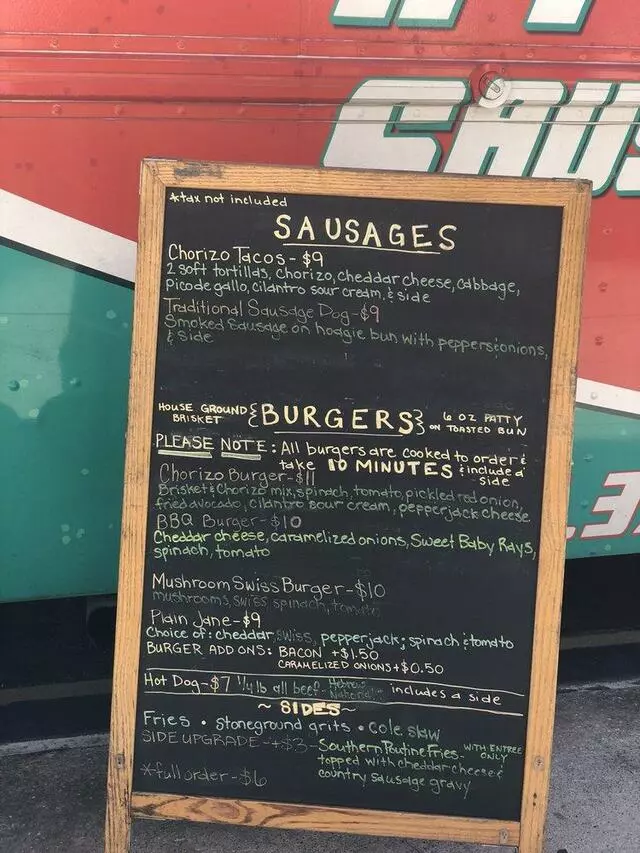 SAUS
*tax not included
SAUSAGES
Chorizo Tacos - $9
2 soft tortillas, chorizo, cheddar cheese, cabbage,
pico de gallo, cilantro sour cream, & side
Traditional Sausage Dog - $9
Smoked Sausage on hoagie bun with peppers & onions,
& side
HOUSE GROUND BRISKET { BURGERS } 6 OZ PATTY ON TOASTED BUN
PLEASE NOTE: All burgers are cooked to order &
take 10 MINUTES & include a
side
Chorizo Burger - $11
Brisket & Chorizo mix, spinach, tomato, pickled red onion,
fried avocado, cilantro sour cream, pepperjack cheese
BBQ Burger - $10
Cheddar cheese, caramelized onions, Sweet Baby Rays,
spinach, tomato
Mushroom Swiss Burger - $10
mushrooms, swiss, spinach, tomato
Plain Jane - $9
Choice of: cheddar, swiss, pepperjack; spinach & tomato
BURGER ADD ONS: BACON +$1.50
CARAMELIZED ONIONS +$0.50
Hot Dog - $7 1/4 lb all beef - Hebrew National - includes a side
~ SIDES ~
Fries • stoneground grits • cole slaw
SIDE UPGRADE - +$3 - Southern Poutine Fries - WITH ENTREE ONLY
topped with cheddar cheese &
country sausage gravy
*full order - $6